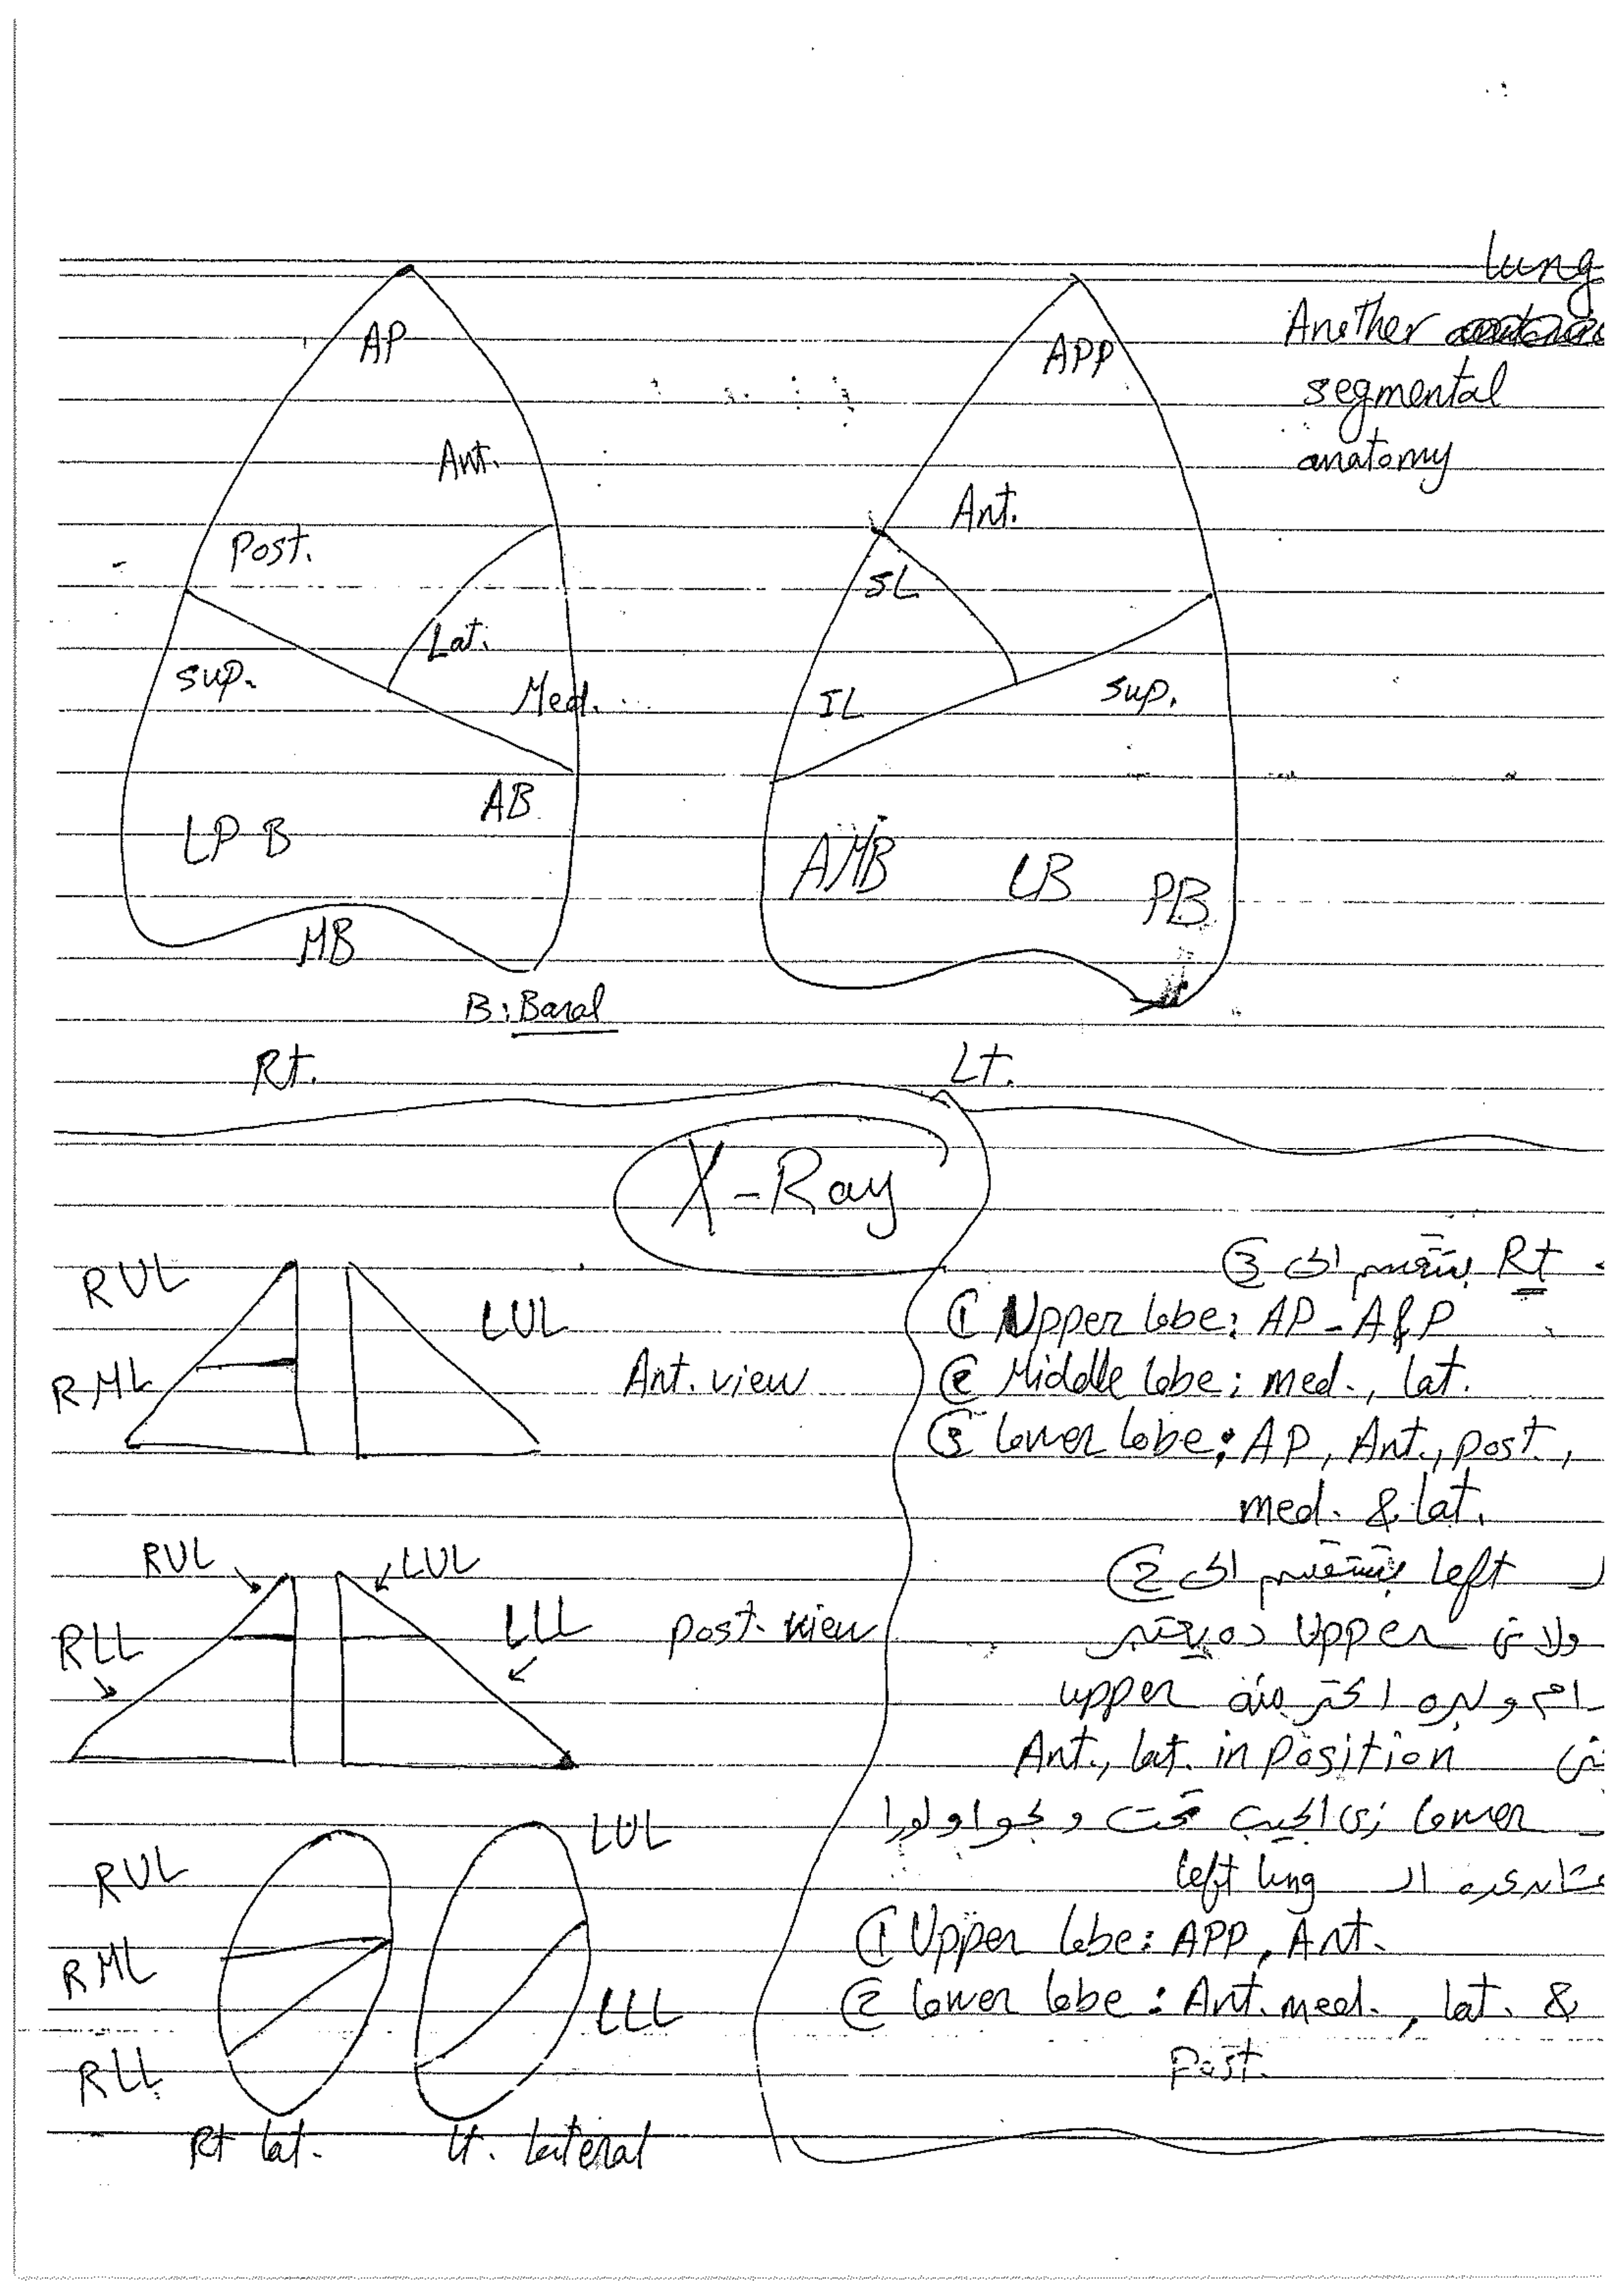 lung
Another
segmental
anatomy
AP
Ant.
Post.
Lat.
sup.
Med.
AB
LP B
MB
B: Basal
Rt.
APP
Ant.
SL
IL
sup.
AMB LB PB
Lt.
X-Ray
RUL
RML
LUL
Ant. view
RUL
LUL
RLL
LLL
post. view
RUL
RML
RLL
LUL
LLL
Rt lat.
Lt. lateral
Rt بتتقسم الى ③
① Upper lobe: AP - A & P
② Middle lobe: med., lat.
③ lower lobe: AP, Ant., post.,
med. & lat.
left بتتقسم الى ②
Upper ده
اكتر منه upper
Ant., lat. in position
lower زى الجيب تحت و
left lung
① Upper lobe: APP, Ant.
② lower lobe: Ant. med., lat. &
Post.